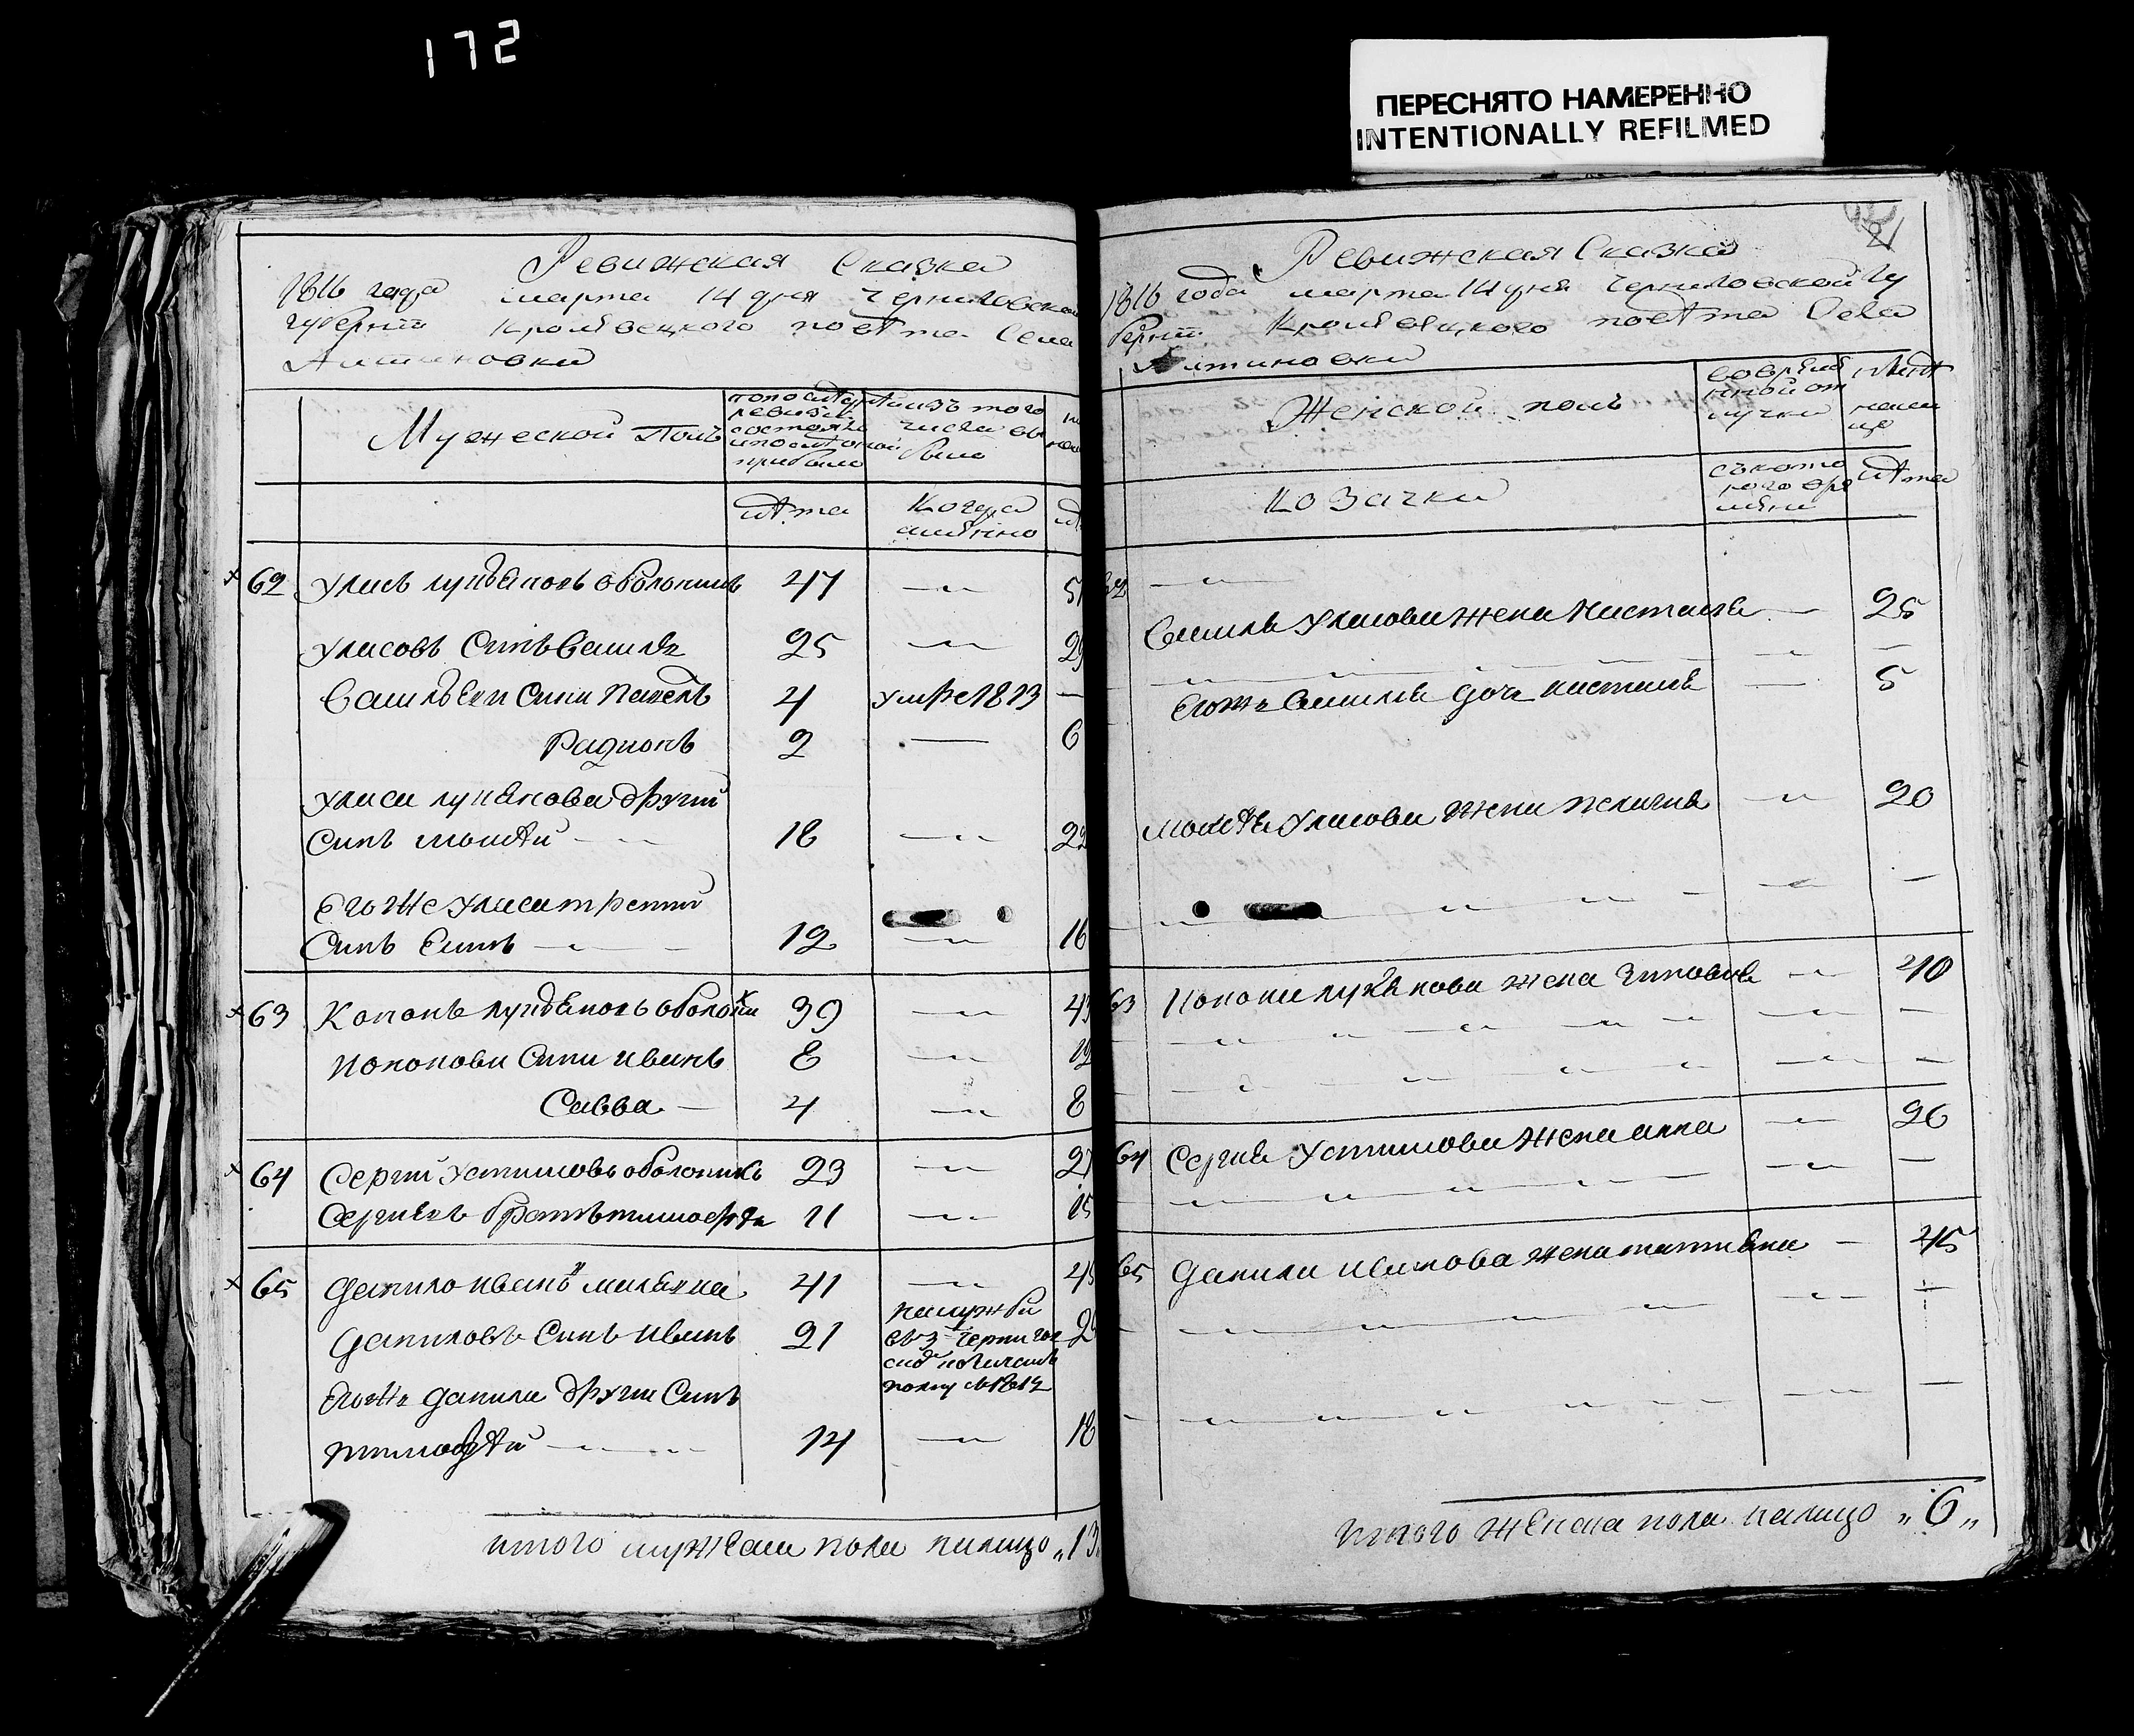 172
ПЕРЕСНЯТО НАМЕРЕННО
INTENTIONALLY REFILMED
Ревижская Сказка
1816 года марта 14 дня Черниговской
губернѣи Кролѣвецкого повѣта Села
Алтиновки
Мужеской Полъ
попослѣдней ревизіи состояло и послѣ оной прибыло
Изъ того числа выбыло
лѣта
Когда имянно
62 Уласъ лукѣяновъ оболоникъ 47 —„— 51
Уласовъ Синъ Василь 25 —„— 29
Василѣеви Сини Павелъ 4 умре 1813 —
Радионъ 2 — 6
Уласа лукѣянова другий
Синъ моисѣй 18 —„— 22
Его же Уласа третий
Синъ 12 —„— 16
63 Кононъ лукѣяновъ оболоник 39 —„— 43
Кононови Сини иванъ 8 —„— 12
Савва — 4 —„— 8
64 Сергий Устимовъ оболоникъ 23 —„— 27
Сергиевъ братъ тимофѣй 11 —„— 15
65 Данило ивановъ 41 —„— 45
Даниловъ Синъ иванъ 21 на службѣ въ 3 Черниговском козачемъ полку съ 1812
Его же данила други Синъ
тимофѣй 14 —„— 18
итого мужеска пола налицо „13„
21
Ревижская Сказка
1816 года марта 14 дня Черниговской гу
бернѣи Кролѣвецкого повѣта Села
Алтиновки
Женской полъ
во временной отлучки
нынѣ налицо
Козачки
съ которого времени
лѣта
62 —„—
Василя Уласова жена Настасія — 25
Его же Василя дочь настасія — 5
Моисѣя Уласова жена —„— 20
63 Конона лукѣянова жена Зиновия —„— 40
64 Сергия Устимова жена анна —„— 26
65 Данила иванова жена татияна — 45
итого женска пола налицо „6„